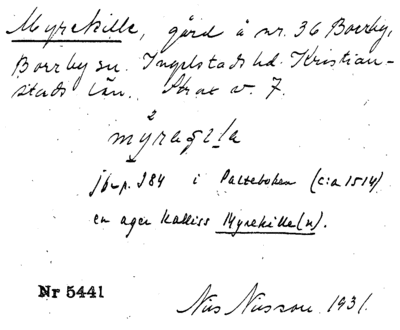 Myrekille, gård å nr. 36 Borrby,
Borrby sn. Ingelstads hd. Kristian-
stads län. Strax v. 7.
2
mÿragila
jb p. 384 i Palteboken (c:a 1514)
en ager kalliss Myrekille(n).
Nr 5441
Nils Nilsson 1931.